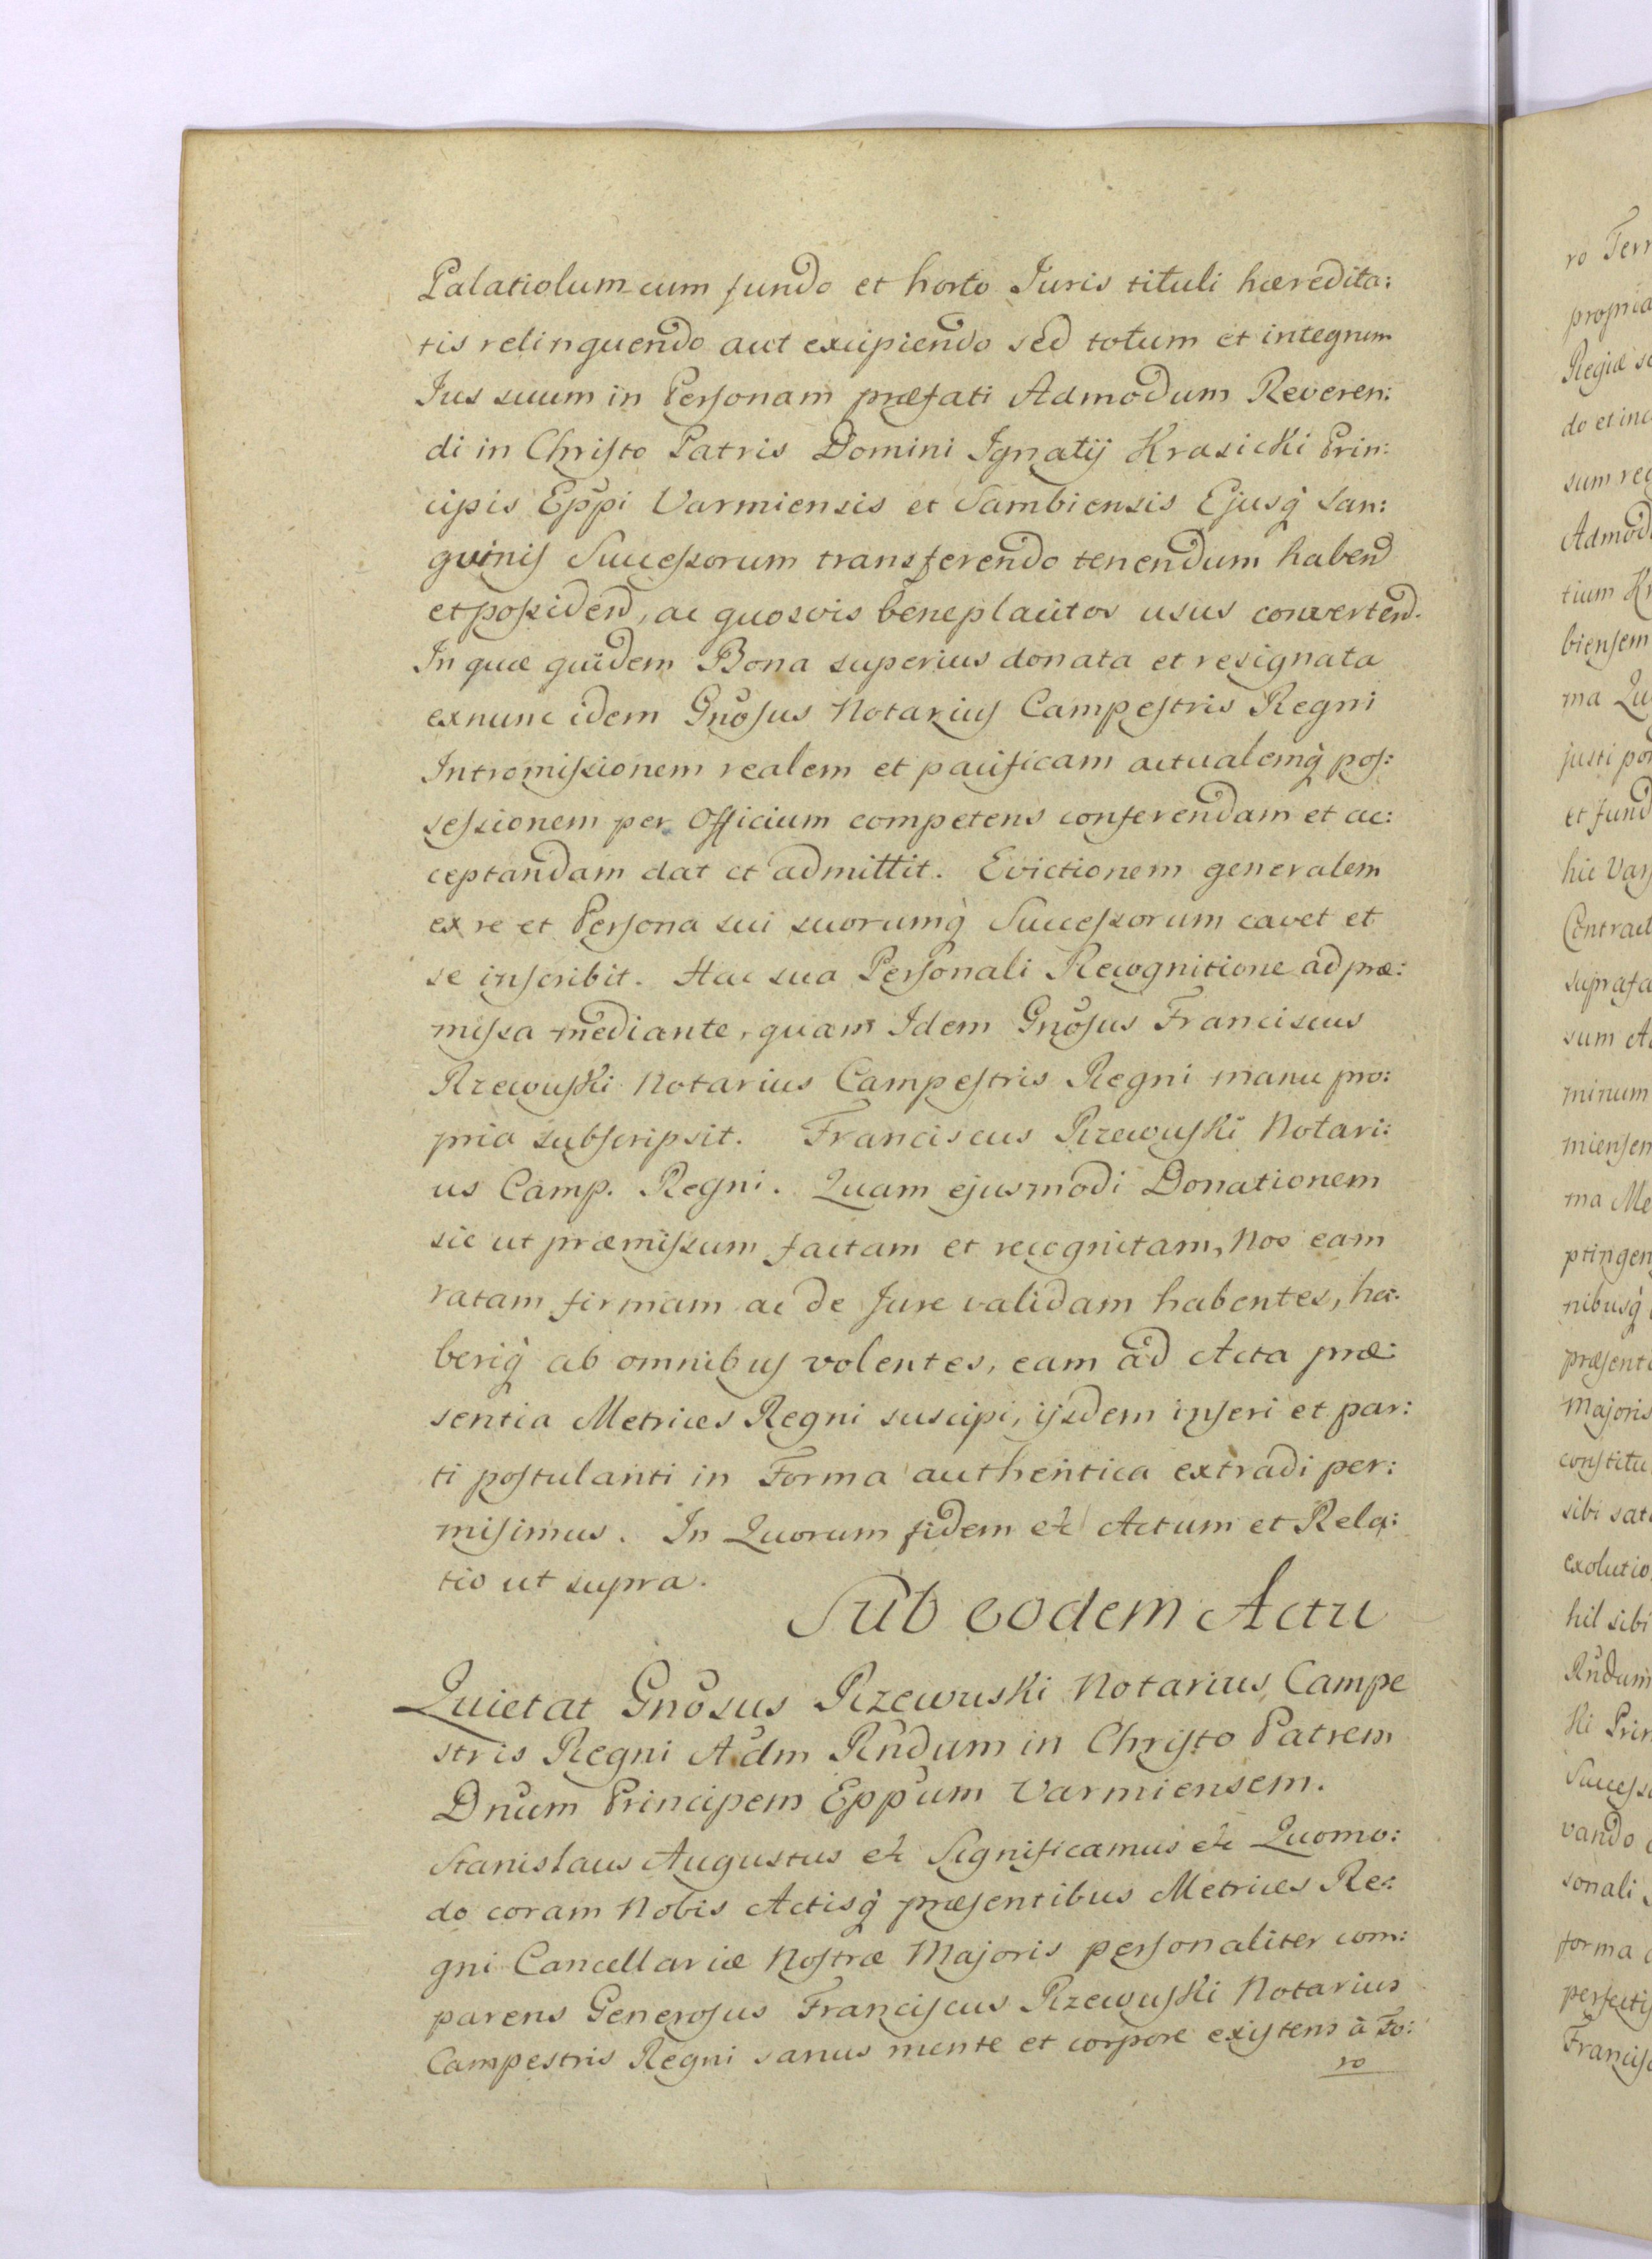 Palatiolum cum fundo et horto Juris tituli hæredita:
tis relinquendo aut excipiendo sed totum et integrum
Jus suum in Personam præfati Admodum Reveren:
di in Christo Patris Domini Ignatij Krasicki Prin:
cipis Eppi Varmiensis et Sambiensis Ejusq̀ San:
guinis Successorum transferendo tenendum habend
et possidend, ac quosvis beneplacitos usus convertend.
In quæ quidem Bona superius donata et resignata
exnunc idem Gnosus Notarius Campestris Regni
Intromissionem realem et pacificam actualemq̀ pos:
sessionem per Officium competens conferendam et ac:
ceptandam dat et admittit. Evictionem generalem
ex re et Persona sui suorumq̀ Successorum cavet et
se inscribit. Hac sua Personali Recognitione ad præ:
missa mediante, quam Idem Gnosus Franciscus
Rzewuski Notarius Campestris Regni manu pro:
pria subscripsit. Franciscus Rzewuski Notari:
us Camp. Regni. Quam ejusmodi Donationem
sic ut præmissum factam et recognitam, Nos eam
ratam firmam ac de Jure validam habentes, ha:
beriq̀ ab omnibus volentes, eam ad Acta præ:
sentia Metrices Regni suscipi, ijsdem inseri et par:
ti postulanti in Forma authentica extradi per:
misimus. In Quorum fidem &c Actum et Rela:
tio ut supra.
Sub eodem Actu
Quietat Gnosus Rzewuski Notarius Campe
stris Regni Adm Rndum in Christo Patrem
Dnum Principem Eppum Varmiensem.
Stanislaus Augustus &c Significamus &c Quomo:
do coram Nobis Actisq̀ præsentibus Metrices Re:
gni Cancellariæ Nostræ Majoris personaliter com:
parens Generosus Franciscus Rzewuski Notarius
Campestris Regni sanus mente et corpore existens à Fo:
ro
ro Terr
propria
Regiæ
do et inc
sum rec
Admod
tium Kr
biensem
ma Qu
justi pon
et fund
hic Var
Contract
suprafa
sum A
minum
miensem
ma Me
ptingen
nibusq̀
præsent
Majoris
constitu
sibi sat
exolutio
hil sibi
Rndum
ki Prin
Success
vando
sonali
forma
perfecti
Francisc